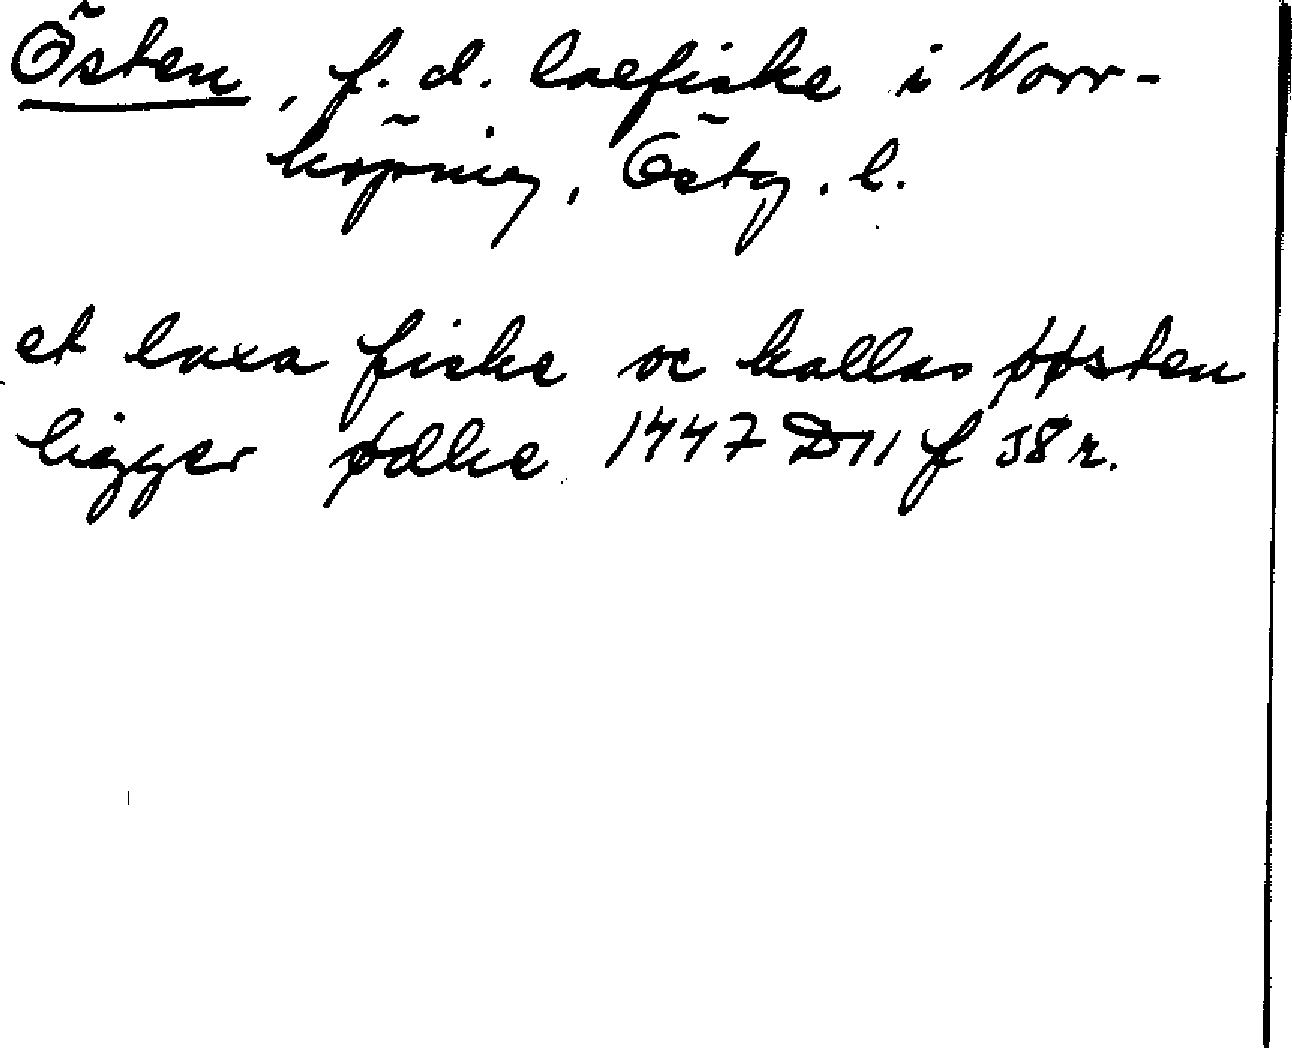 Östen, f. d. laxfiske i Norr-
köping, Östg. l.
et laxa fiske oc kallas øøsten
ligger ødhe 1447 D11 f 58 r.